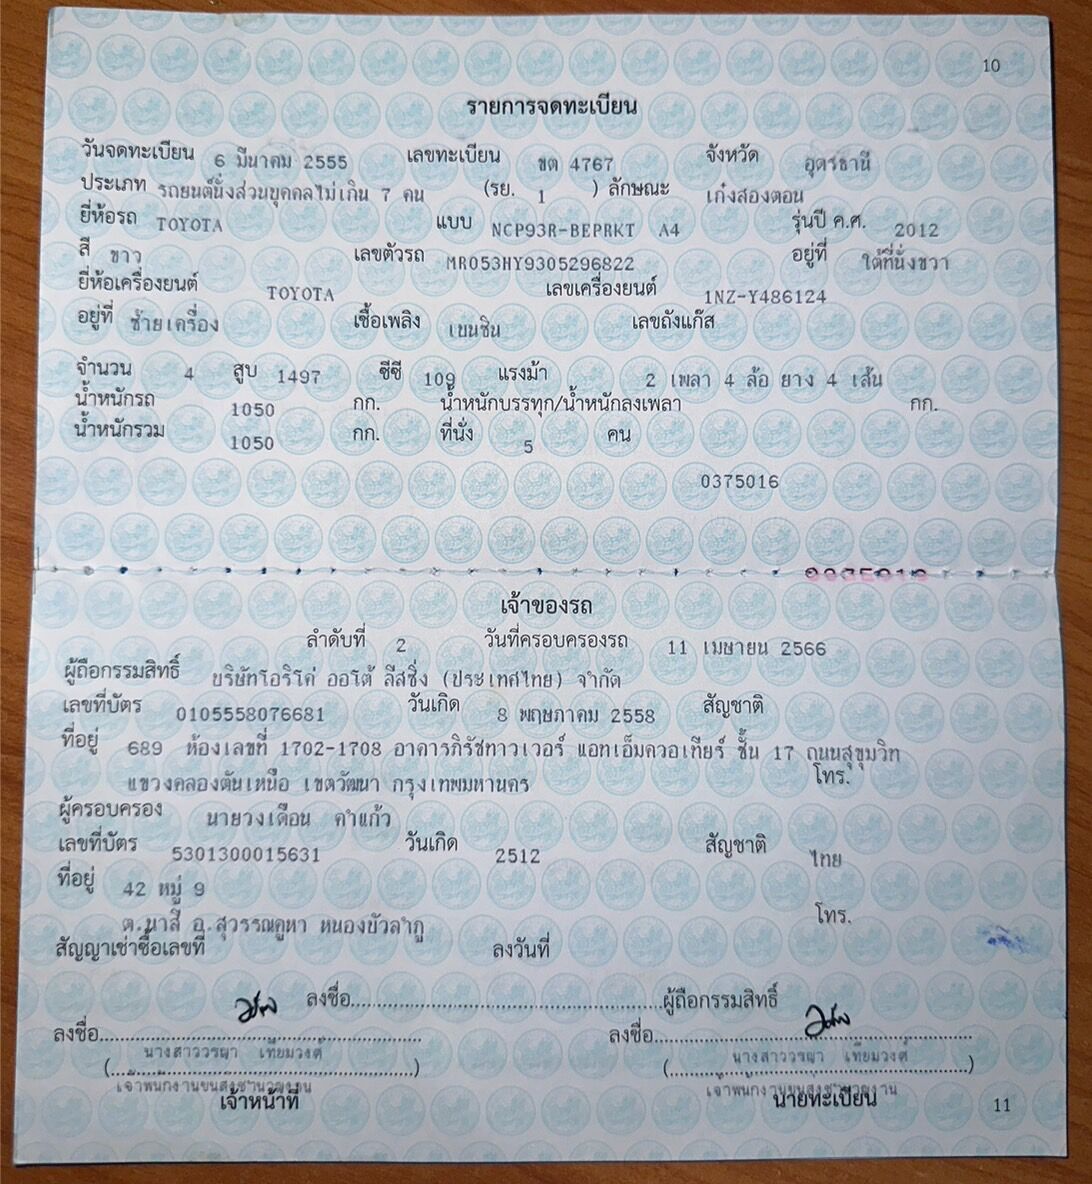 10
รายการจดทะเบียน
วันจดทะเบียน 6 มีนาคม 2555 เลขทะเบียน ขต 4767 จังหวัด อุดรธานี
ประเภท รถยนต์นั่งส่วนบุคคลไม่เกิน 7 คน (รย. 1 ) ลักษณะ เก๋งสองตอน
ยี่ห้อรถ TOYOTA แบบ NCP93R-BEPRKT A4 รุ่นปี ค.ศ. 2012
สี ขาว เลขตัวรถ MR053HY9305296822 อยู่ที่ ใต้ที่นั่งขวา
ยี่ห้อเครื่องยนต์ TOYOTA เลขเครื่องยนต์ 1NZ-Y486124
อยู่ที่ ซ้ายเครื่อง เชื้อเพลิง เบนซิน เลขถังแก๊ส
จำนวน 4 สูบ 1497 ซีซี 109 แรงม้า 2 เพลา 4 ล้อ ยาง 4 เส้น
น้ำหนักรถ 1050 กก. น้ำหนักบรรทุก/น้ำหนักลงเพลา กก.
น้ำหนักรวม 1050 กก. ที่นั่ง 5 คน
0375016
เจ้าของรถ
ลำดับที่ 2 วันที่ครอบครองรถ 11 เมษายน 2566
ผู้ถือกรรมสิทธิ์ บริษัทโอริโค่ ออโต้ ลีสซิ่ง (ประเทศไทย) จำกัด
เลขที่บัตร 0105558076681 วันเกิด 8 พฤษภาคม 2558 สัญชาติ
ที่อยู่ 689 ห้องเลขที่ 1702-1708 อาคารภิรัชทาวเวอร์ แอทเอ็มควอเทียร์ ชั้น 17 ถนนสุขุมวิท
แขวงคลองตันเหนือ เขตวัฒนา กรุงเทพมหานคร โทร.
ผู้ครอบครอง นายวงเดือน คำแก้ว
เลขที่บัตร 5301300015631 วันเกิด 2512 สัญชาติ ไทย
ที่อยู่ 42 หมู่ 9
ต.นาสี อ.สุวรรณคูหา หนองบัวลำภู โทร.
สัญญาเช่าซื้อเลขที่ ลงวันที่
ลงชื่อ............................................ผู้ถือกรรมสิทธิ์
ลงชื่อ............................................ ลงชื่อ............................................
(นางสาววรญา เทียมวงศ์) (นางสาววรญา เทียมวงศ์)
เจ้าพนักงานขนส่งชำนาญงาน เจ้าพนักงานขนส่งชำนาญงาน
เจ้าหน้าที่ นายทะเบียน
11